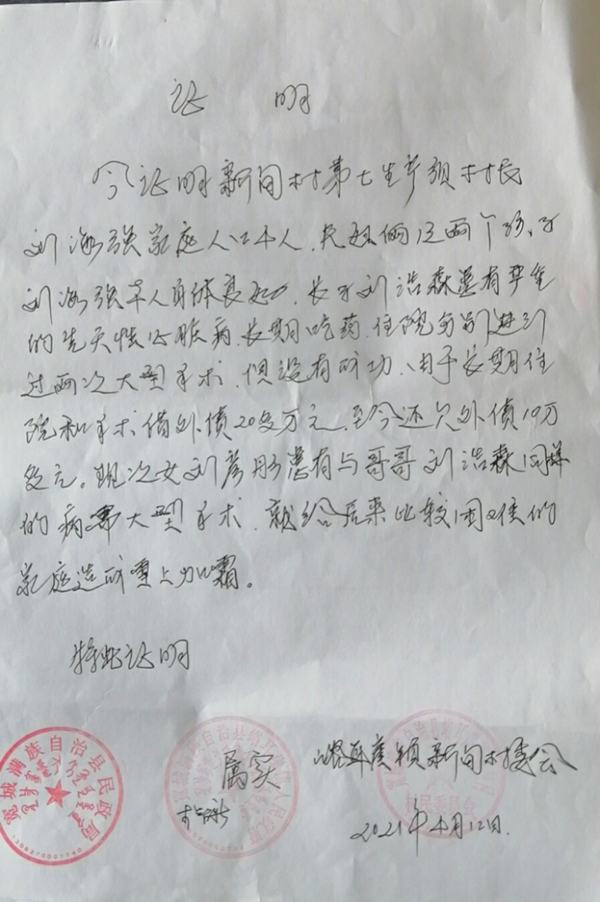 证 明
今证明新甸村第七生产组村民
刘海强家庭人口4人，夫妻俩还两个孩子
刘海强本人身体良好，长子刘浩森患有严重
的先天性心脏病，长期吃药，住院分别进行
过两次大型手术，但没有成功，由于长期住
院和手术借外债20多万元，至今还欠外债10万
多元。现次女刘彦彤患有与哥哥刘浩森同样
的病需大型手术，就给后来比较困难的
家庭造成雪上加霜。
特此证明
属实
新甸村委会
2021年4月12日.
宽城满族自治县民政局
1308270001540
村民委员会